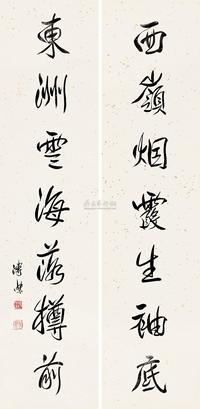 西嶺烟霞生袖底
東洲雲海落樽前
溥傑